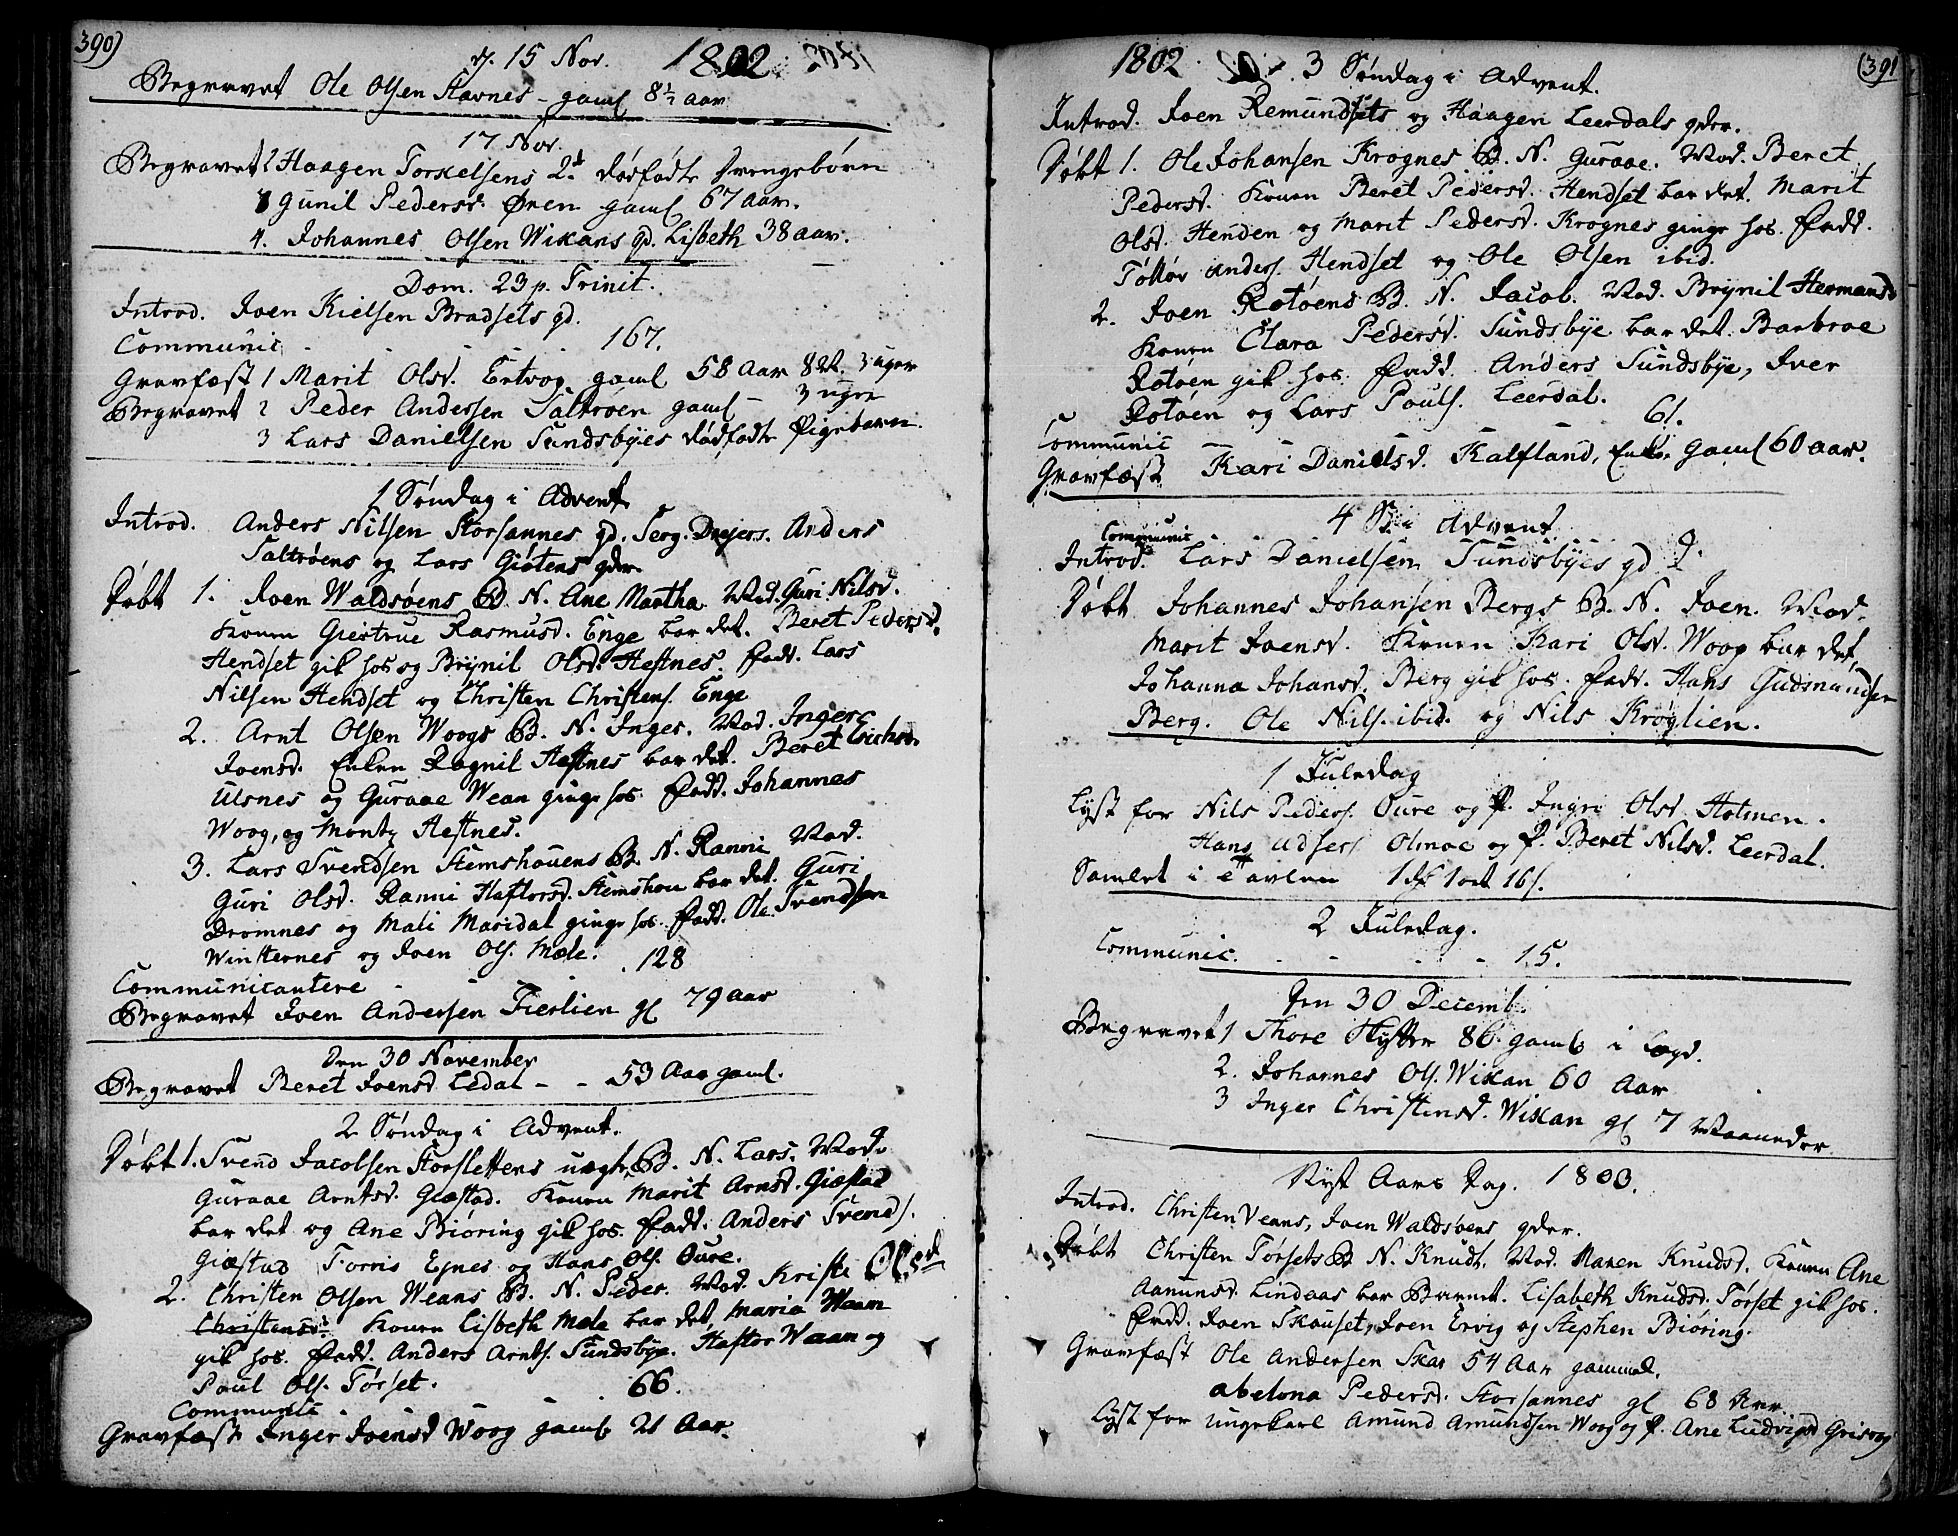 390)
d. 15 Nov. 1802.
Begravet Ole Olsen Stavnes - gaml 8½ aar
17 Nov.
Begravet 2 Haagen Torkelsens 2de dødfødte Drengebørn
3 Gunil Pedersd. Øren gaml 67 aar.
4. Johannes Olsen Wikans gd. Lisbeth 38 aar.
Dom. 23 p. Trinit.
Introd. Joen Kielsen Bradsets gd.
Communic - - - - 167.
Gravfæst 1 Marit Olsd. Ertvog gaml 58 aar 8 M. 3 uger
Begravet 2 Peder Andersen Saltrøen gaml - 3 ugre
3 Lars Danielsen Sundsbyes dødfødte Pigebarn.
1 Søndag i Advent
Introd. Anders Nilsen Storsannes gd. Serg. Drejers. Anders
Saltrøens og Lars Giøtens gdr.
Døbt 1. Joen Waldsøens B. N. Ane Martha Mod. Guri Nilsd.
Konen Giertrue Rasmusd. Enge bar det. Beret Pedersd.
Hendset gik hos og Brynil Olsd. Hestnes. Fadd. Lars
Nilsen Hendset og Christen Christens. Enge
2. Arnt Olsen Woogs B. N. Inger. Mod. Inger
Joensd. Enken Ragnil Hestnes bar det. Beret Erichsd.
Ulsnes og Guraae Wean ginge hos. Fadd. Johannes
Woog, og Montz Hestnes.
3. Lars Svendsen Stemshouens B. N. Ranni Mod.
Guri Olsd. Ranni Haftorsd. Stemshou bar det. Guri
Dromnes og Mali Maridal ginge hos. Fadd. Ole Svendsen
Winsternes og Joen Ols. Mele.
Communicantere - 128
Begravet Joen Andersen Fierlien gl 79 aar
Den 30 November
Begravet Beret Joensd Ledal - - 53 Aar gaml.
2 Søndag i Advent.
Døbt 1. Svend Jacobsen Storslettens uægte B. N. Lars. Mod.
Guraae Arntsd. Giæstad. Konen Marit Arnsd. Giæstad
bar det og Ane Biøring gik hos. Fadd. Anders Svends.
Giæstad Torris Egnes og Hans Ols. Oure.
2. Christen Olsen Weans B. N. Peder. Mod. Kristi Olsd
Christensd. Konen Lisbeth Mele bar det, Maria Weam
gik hos. Fadd. Anders Arnts. Sundsbye. Haftor Waam og
Poul Ols. Tørset.
Communic - - - 66.
Gravfæst Inger Joensd Woog gaml 21 Aar.
1802 3 Søndag i Advent. (391
Introd. Joen Remundsets og Haagen Leerdals gdr.
Døbt 1. Ole Johansen Krognes B. N. Guraae. Mod. Beret
Pedersd. Konen Beret Pedersd. Hendset bar det. Marit
Olsd. Henden og Marit Pedersd. Krognes ginge hos. Fadd.
Tølløv Anders. Hendset og Ole Olsen ibid.
2. Joen Rotøens B. N. Jacob. Mod. Brynil Hermansd
Konen Clara Pedersd. Sundsbye bar det. Barbroe
Rotøen gik hos. Fadd. Anders Sundsbye, Iver
Rotøen og Lars Pouls. Leerdal.
Communic - - - 61.
Gravfæst Kari Danielsd. Kalfland, Enke gaml 60 aar.
4 S. i Advent
Communic
Introd. Lars Danielsen Sundsbyes gd
Døbt Johannes Johansen Bergs B. N. Joen. Mod.
Marit Joensd. Konen Kari Olsd. Woog bar det,
Johanna Johansd. Berg gik hos. Fadd. Hans Gudmundsen
Berg. Ole Nils. ibid. og Nils Krøglien.
1 Juledag
Lyst for Nils Peders. Oure og P. Ingri Olsd. Holmen.
Hans Olmoe og P. Beret Nilsd. Leerdal.
Samlet i Tavlen 1 rdr 1 ort 16 s.
2 Juledag.
Communic. - - - - 15.
Den 30 Decemb.
Begravet 1 Thore Hytter 86 gaml i Lægd.
2. Johannes Ols. Wikan 60 Aar
3 Inger Christensd. Wikan gl 7 Maaneder
Nyt Aars Dag. 1803.
Introd. Christen Veans, Joen Waldsøens gder.
Døbt Christen Tørsets B N. Knudt. Mod. Maren Knudsd. Konen Ane
Aamunsd. Lindaas bar Barnet. Lisabeth Knudsd. Tørset gik hos.
Fadd. Joen Skouset, Joen Ervig og Stephen Biøring.
Gravfæst Ole Andersen Skar 54 Aar gammel.
Abelona Pedersd. Storsannes gl 68 Aar.
Lyst for ungekarl Amund Amundsen Woog og P. Ane Ludvigsd Grisvog